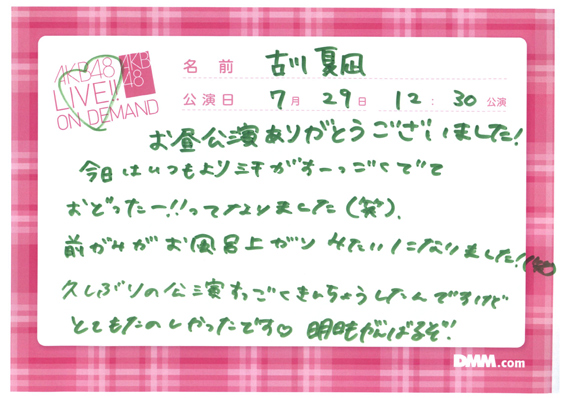 AKB48
LIVE!!
ON DEMAND
AKB
48
名前 古川夏凪
公演日 7月29日 12:30公演
お昼公演ありがとうございました!
今日はいつもより汗がすーっごくでて
おどったー!!ってなりました(笑).
前がみがお風呂上がりみたいになりました!(笑)
久しぶりの公演すっごくきんちょうしたんですけど
とてもたのしかったです♡ 明日もがんばるぞ!
DMM.com